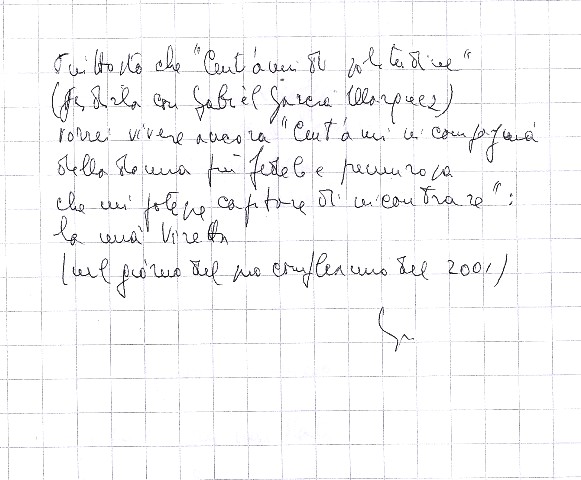 Piuttosto che "Cent'anni di solitudine"
(per dirla con Gabriel Garcia Marquez)
vorrei vivere ancora "Cent'anni in compagnia
della donna più fedele e premurosa
che mi potesse capitare di incontrare":
la mia
(nel giorno del suo compleanno del 2001)